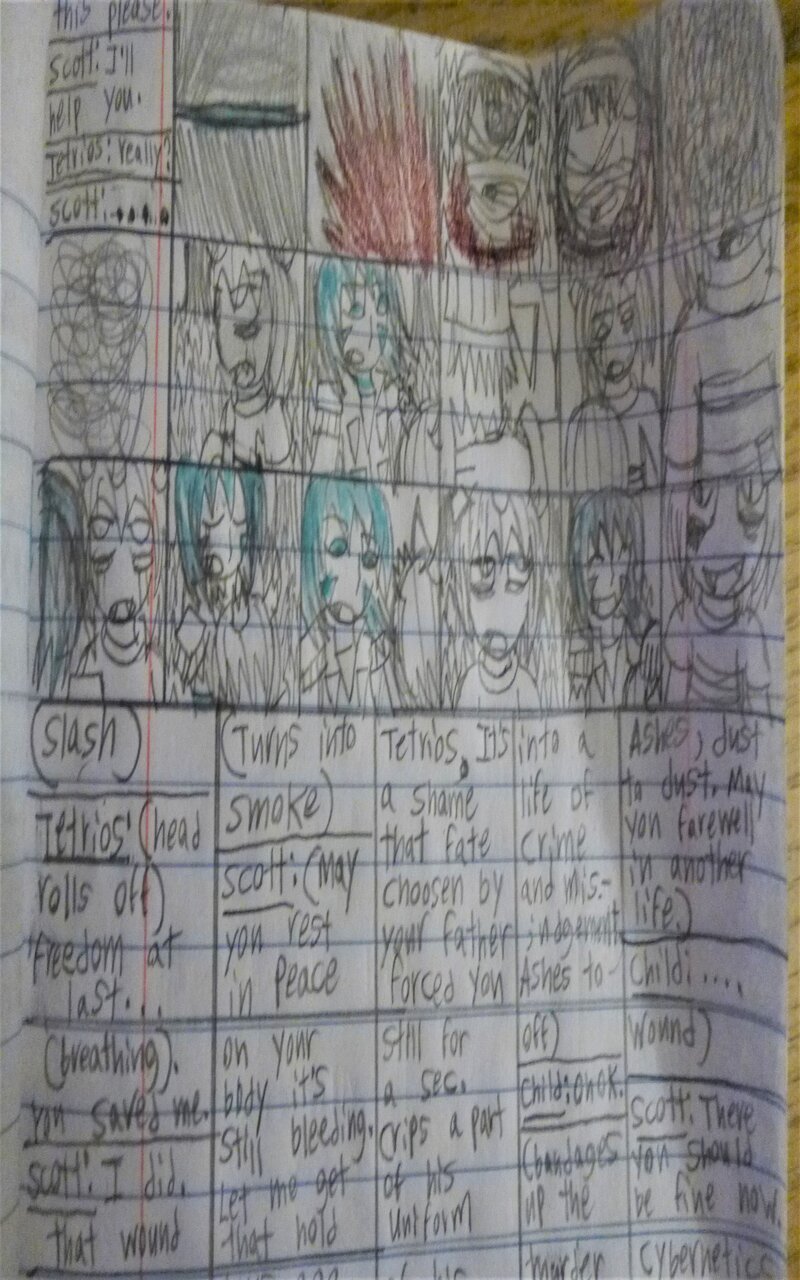 this please.
Scott: I'll
help you.
Tetrios: really?
Scott: .....
(Slash)
Tetrios: (head
rolls off)
Freedom at
last...
(Turns into
smoke)
Scott: (May
you rest
in peace
Tetrios, It's
a shame
that fate
choosen by
your father
forced you
into a
life of
crime
and mis-
judgement.
Ashes to
Ashes, dust
to dust. May
you farewell
in another
life.)
Child: ....
(breathing).
You saved me.
Scott: I did.
that wound
on your
body it's
still bleeding.
Let me get
that hold
still for
a sec.
Crips a part
of his
uniform
off)
Child: oh ok.
(bandages
up the
wound)
Scott: There
you should
be fine now.
of his
murder
cybernetics